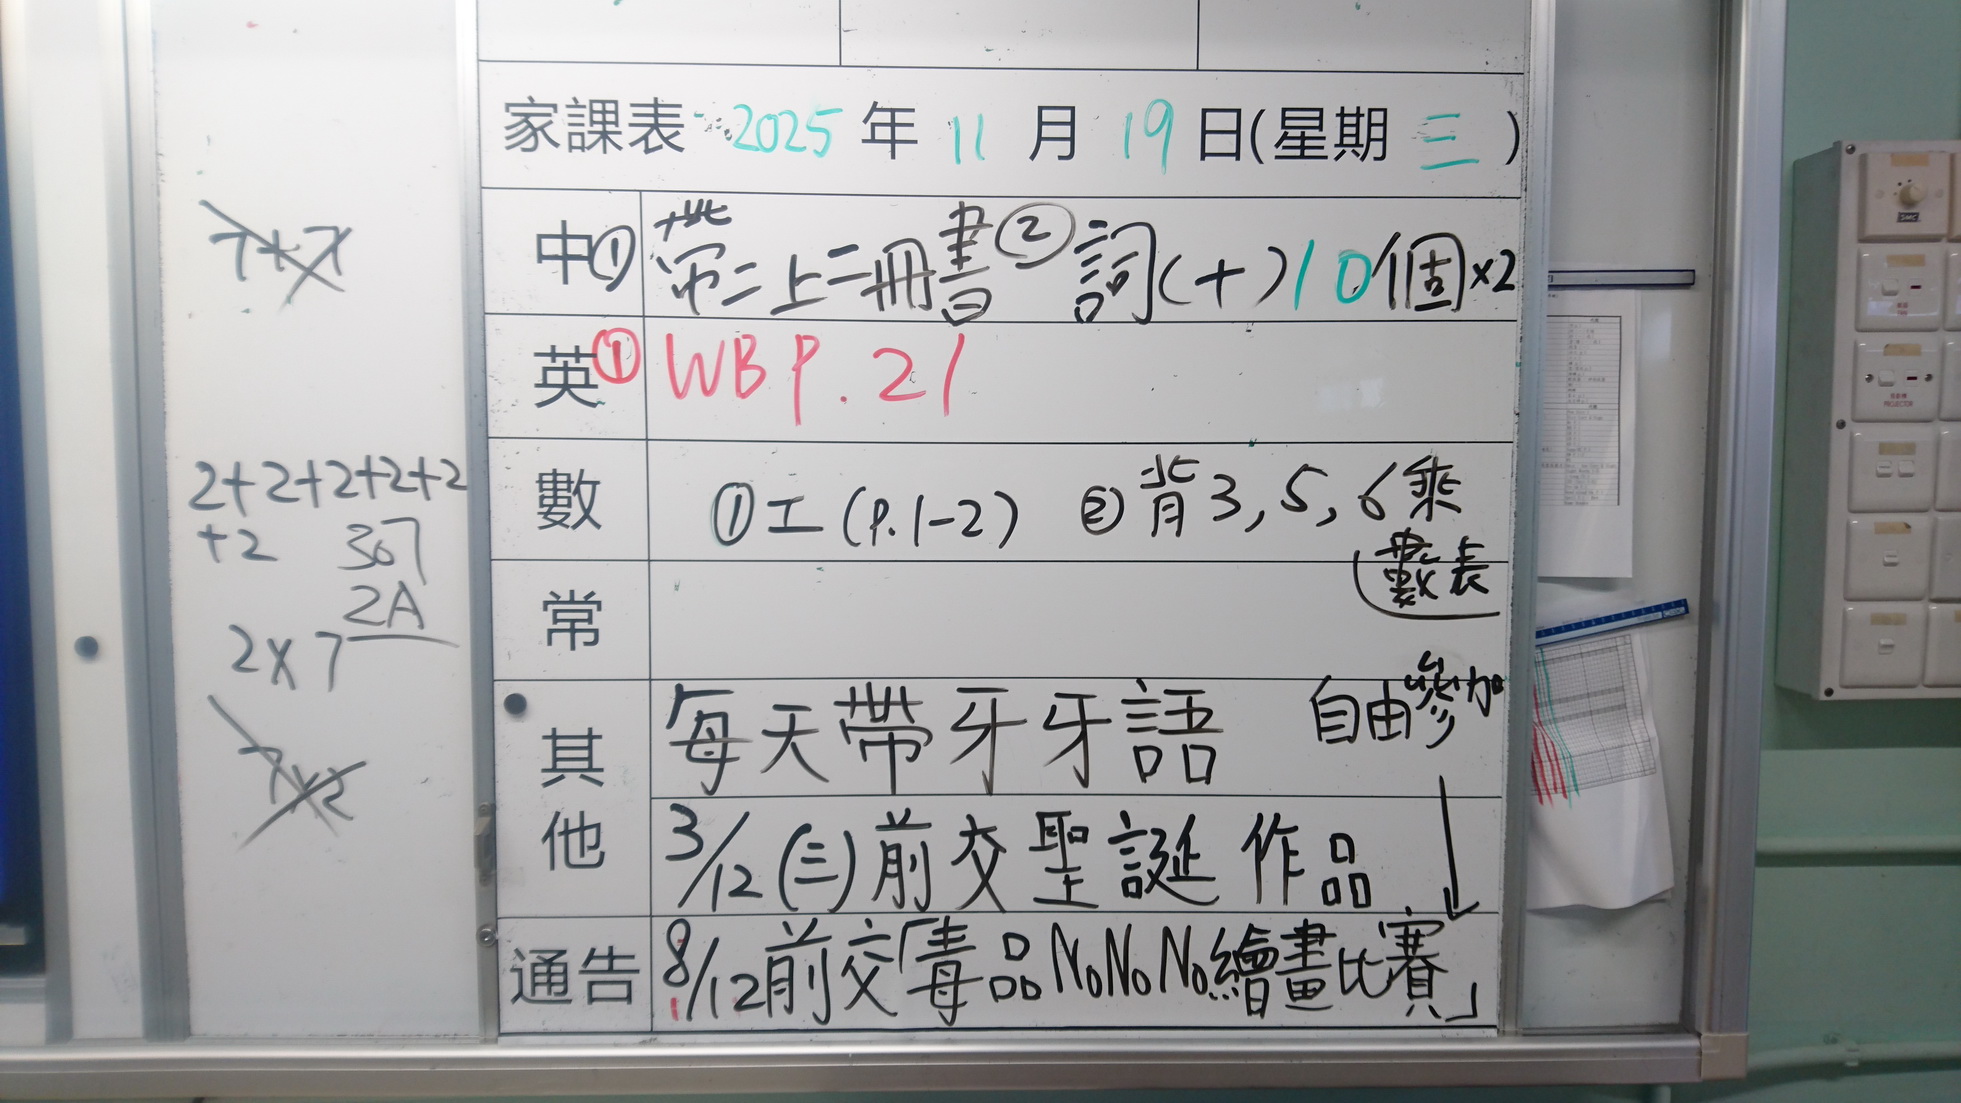 家課表 2025 年 11 月 19 日(星期 三 )
中① 帶二上二冊書 ② 詞(十)10個×2
英① WB P.21
數 ①工(P.1-2) ②背3,5,6乘
數表
常
其他
每天帶牙牙語 自由參加
3/12(三)前交聖誕作品
通告 8/12前交「毒品NoNoNo繪畫比賽」
7+7
2+2+2+2+2
+2 307
2A
2×7
7×2
PROJECTOR